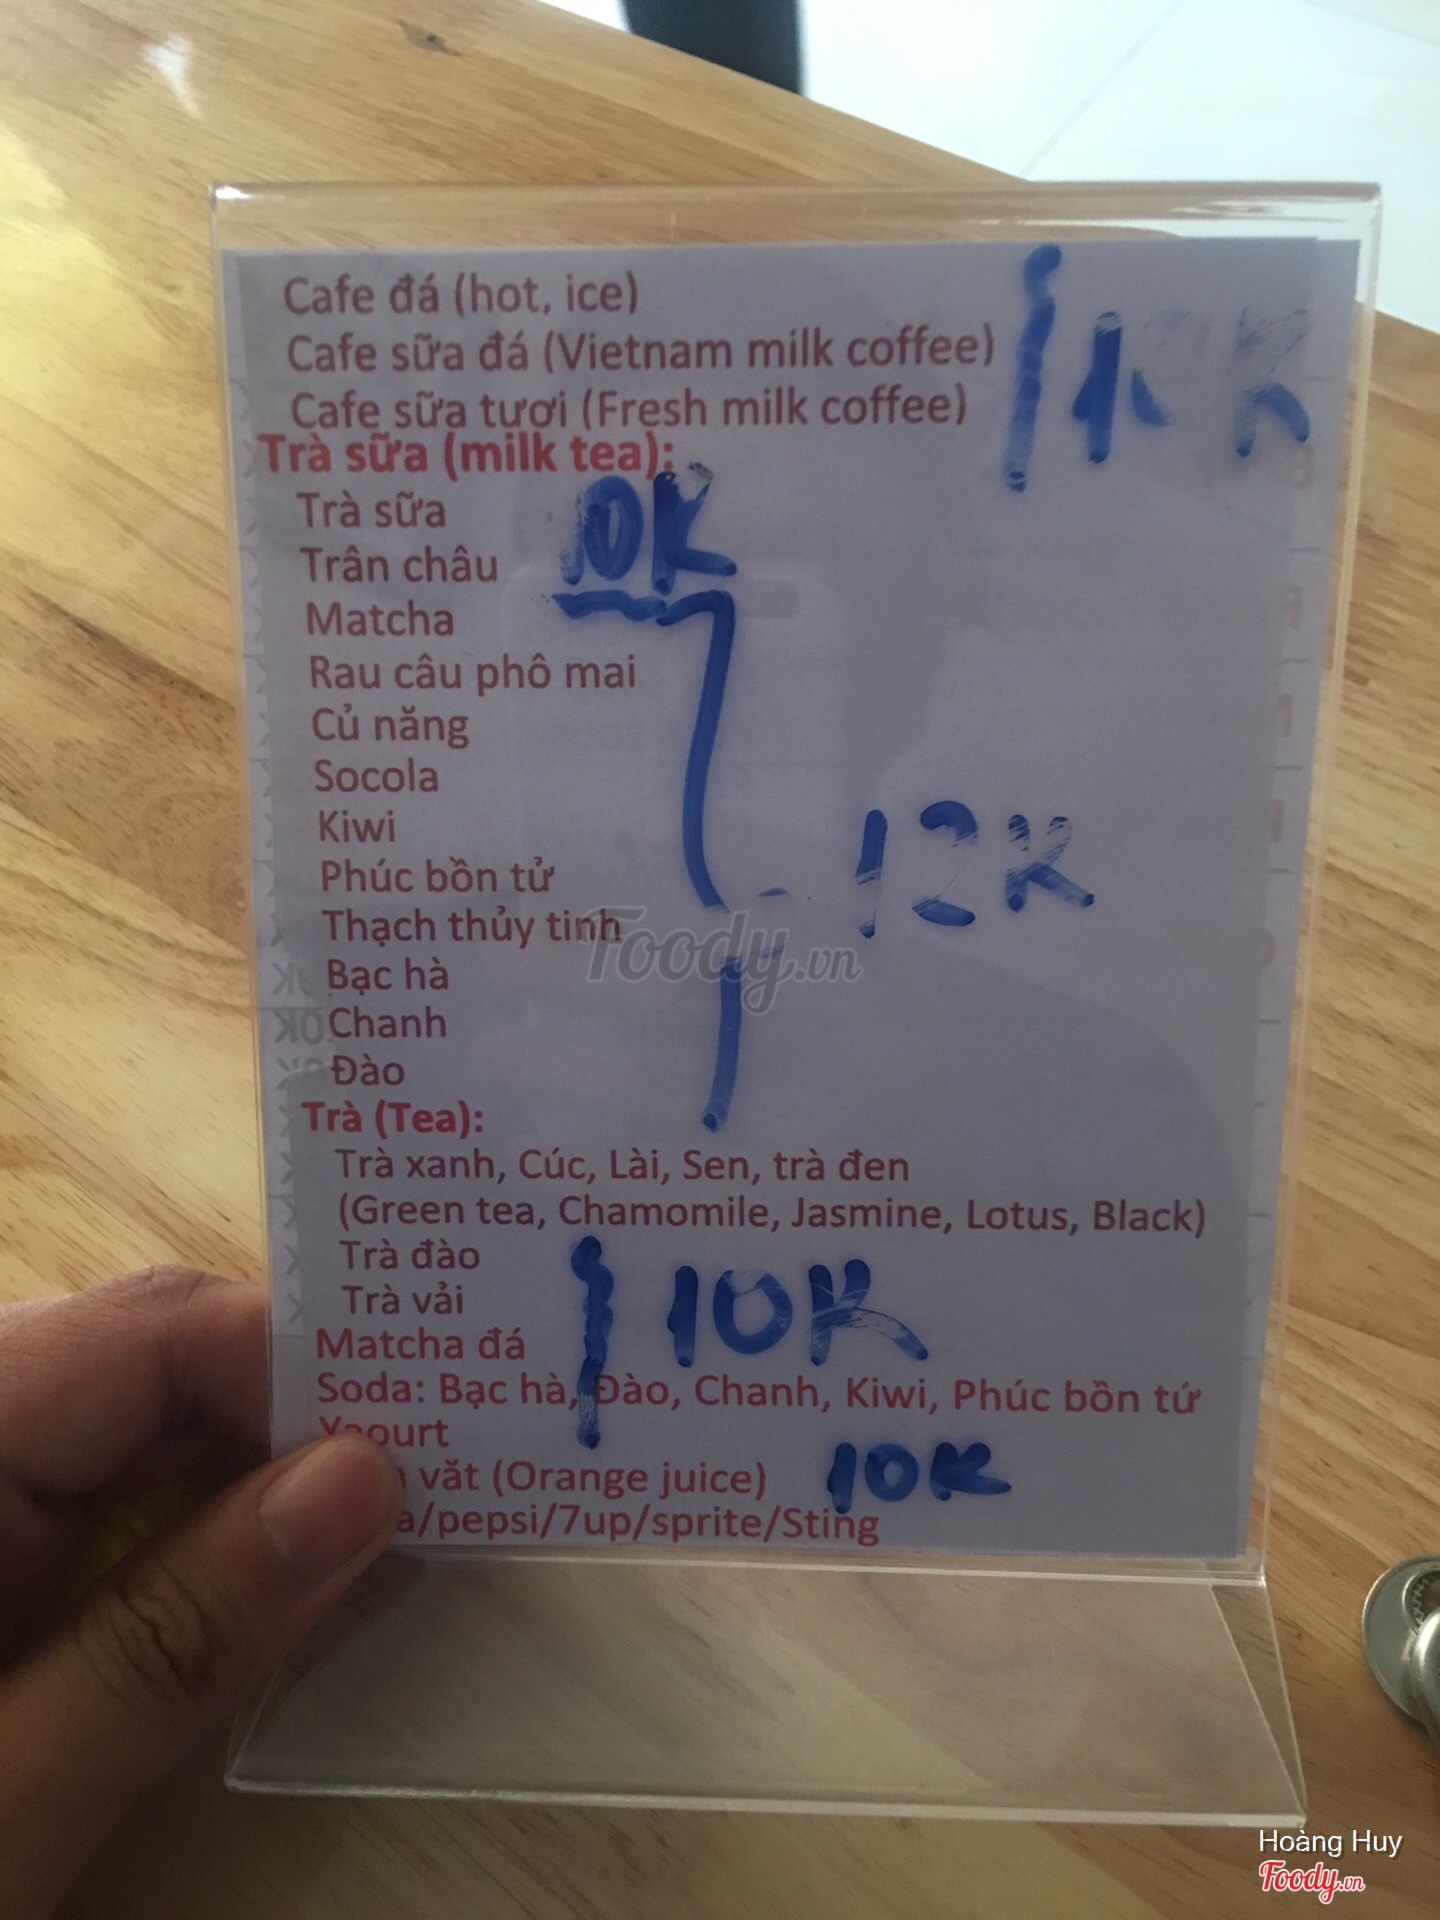 Cafe đá (hot, ice)
Cafe sữa đá (Vietnam milk coffee)
Cafe sữa tươi (Fresh milk coffee)
10K
Trà sữa (milk tea):
Trà sữa
10K
Trân châu
Matcha
Rau câu phô mai
Củ năng
Socola
Kiwi
12K
Phúc bồn tử
Thạch thủy tinh
Foody.vn
Bạc hà
Chanh
Đào
Trà (Tea):
Trà xanh, Cúc, Lài, Sen, trà đen
(Green tea, Chamomile, Jasmine, Lotus, Black)
Trà đào
Trà vải
10K
Matcha đá
Soda: Bạc hà, Đào, Chanh, Kiwi, Phúc bồn tứ
Yaourt
văt (Orange juice) 10K
/pepsi/7up/sprite/Sting
Hoàng Huy
Foody.vn